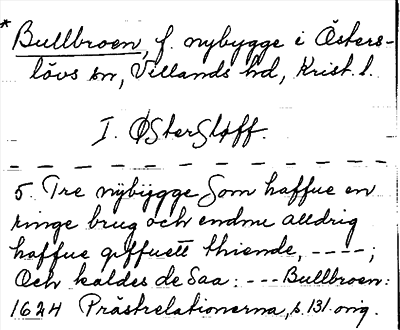 * Bullbroen, f. nybygge i Östers-
lövs sn, Villands hd, Krist. l.
I. ØSterSløff.
5. Tre nÿbÿgge Som haffue en
ringe brug och endnu alldrig
haffue giffuett thiende, ----;
Och kaldes de Saa: --- Bullbroen:
1624 Prästrelationerna, s. 131. orig.